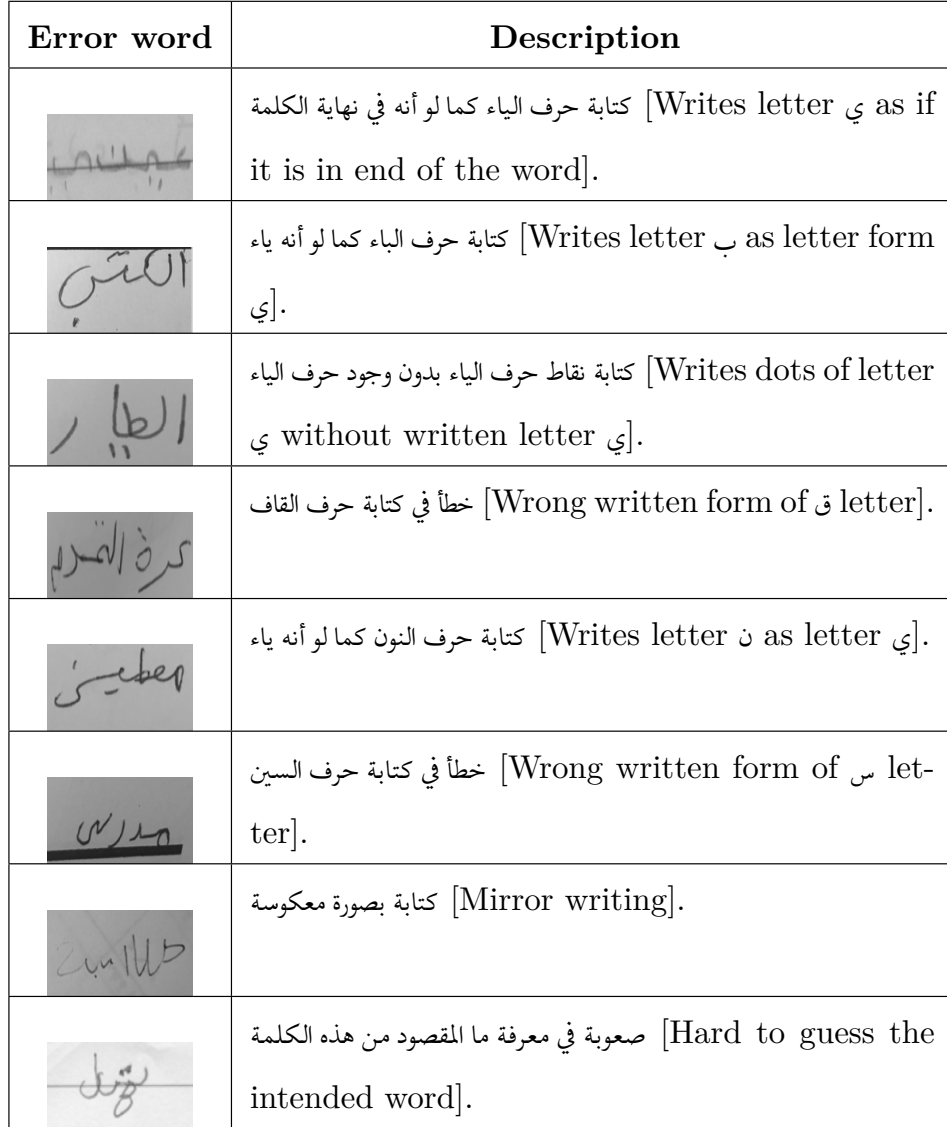 Error word Description
كتابة حرف الياء كما لو أنه في نهاية الكلمة [Writes letter ي as if
it is in end of the word].
الكتب
كتابة حرف الباء كما لو أنه ياء [Writes letter ب as letter form
ي].
الطيار
كتابة نقاط حرف الياء بدون وجود حرف الياء [Writes dots of letter
ي without written letter ي].
كرة القدم
خطأ في كتابة حرف القاف [Wrong written form of ق letter].
كتابة حرف النون كما لو أنه ياء [Writes letter ن as letter ي].
مدرس
خطأ في كتابة حرف السين [Wrong written form of س let-
ter].
كتابة بصورة معكوسة [Mirror writing].
صعوبة في معرفة ما المقصود من هذه الكلمة [Hard to guess the
intended word].